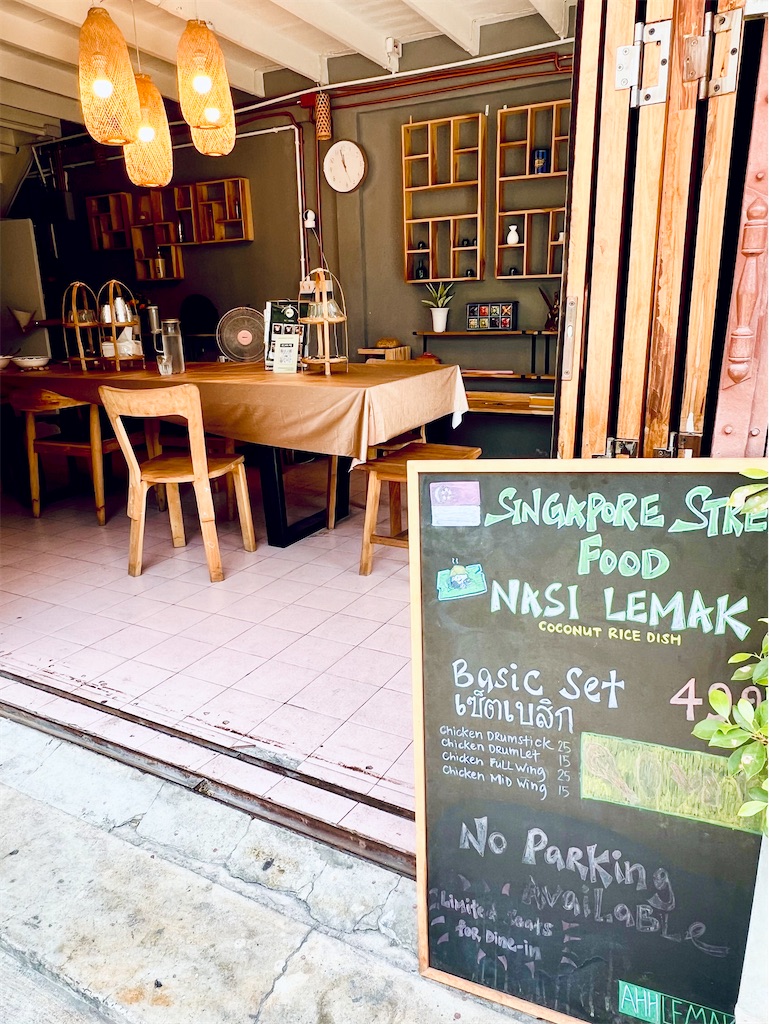 SINGAPORE STRE
FOOD
NASI LEMAK
COCONUT RICE DISH
Basic Set
เซ็ตเบสิก
Chicken Drumstick 25
Chicken Drumlet 15
Chicken Full Wing 25
Chicken Mid Wing 15
No Parking
Available
Limited Seats
for Dine-in
AHH LEMAK